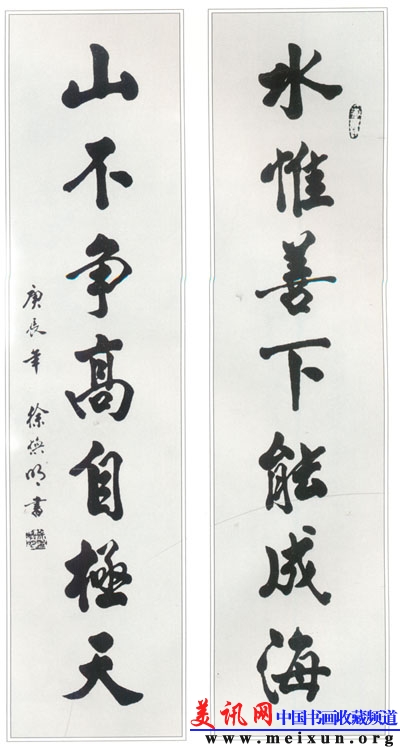 水惟善下能成海
山不争髙自極天
庚辰年 徐 明書
美讯网 中国书画收藏频道
www.meixun.org